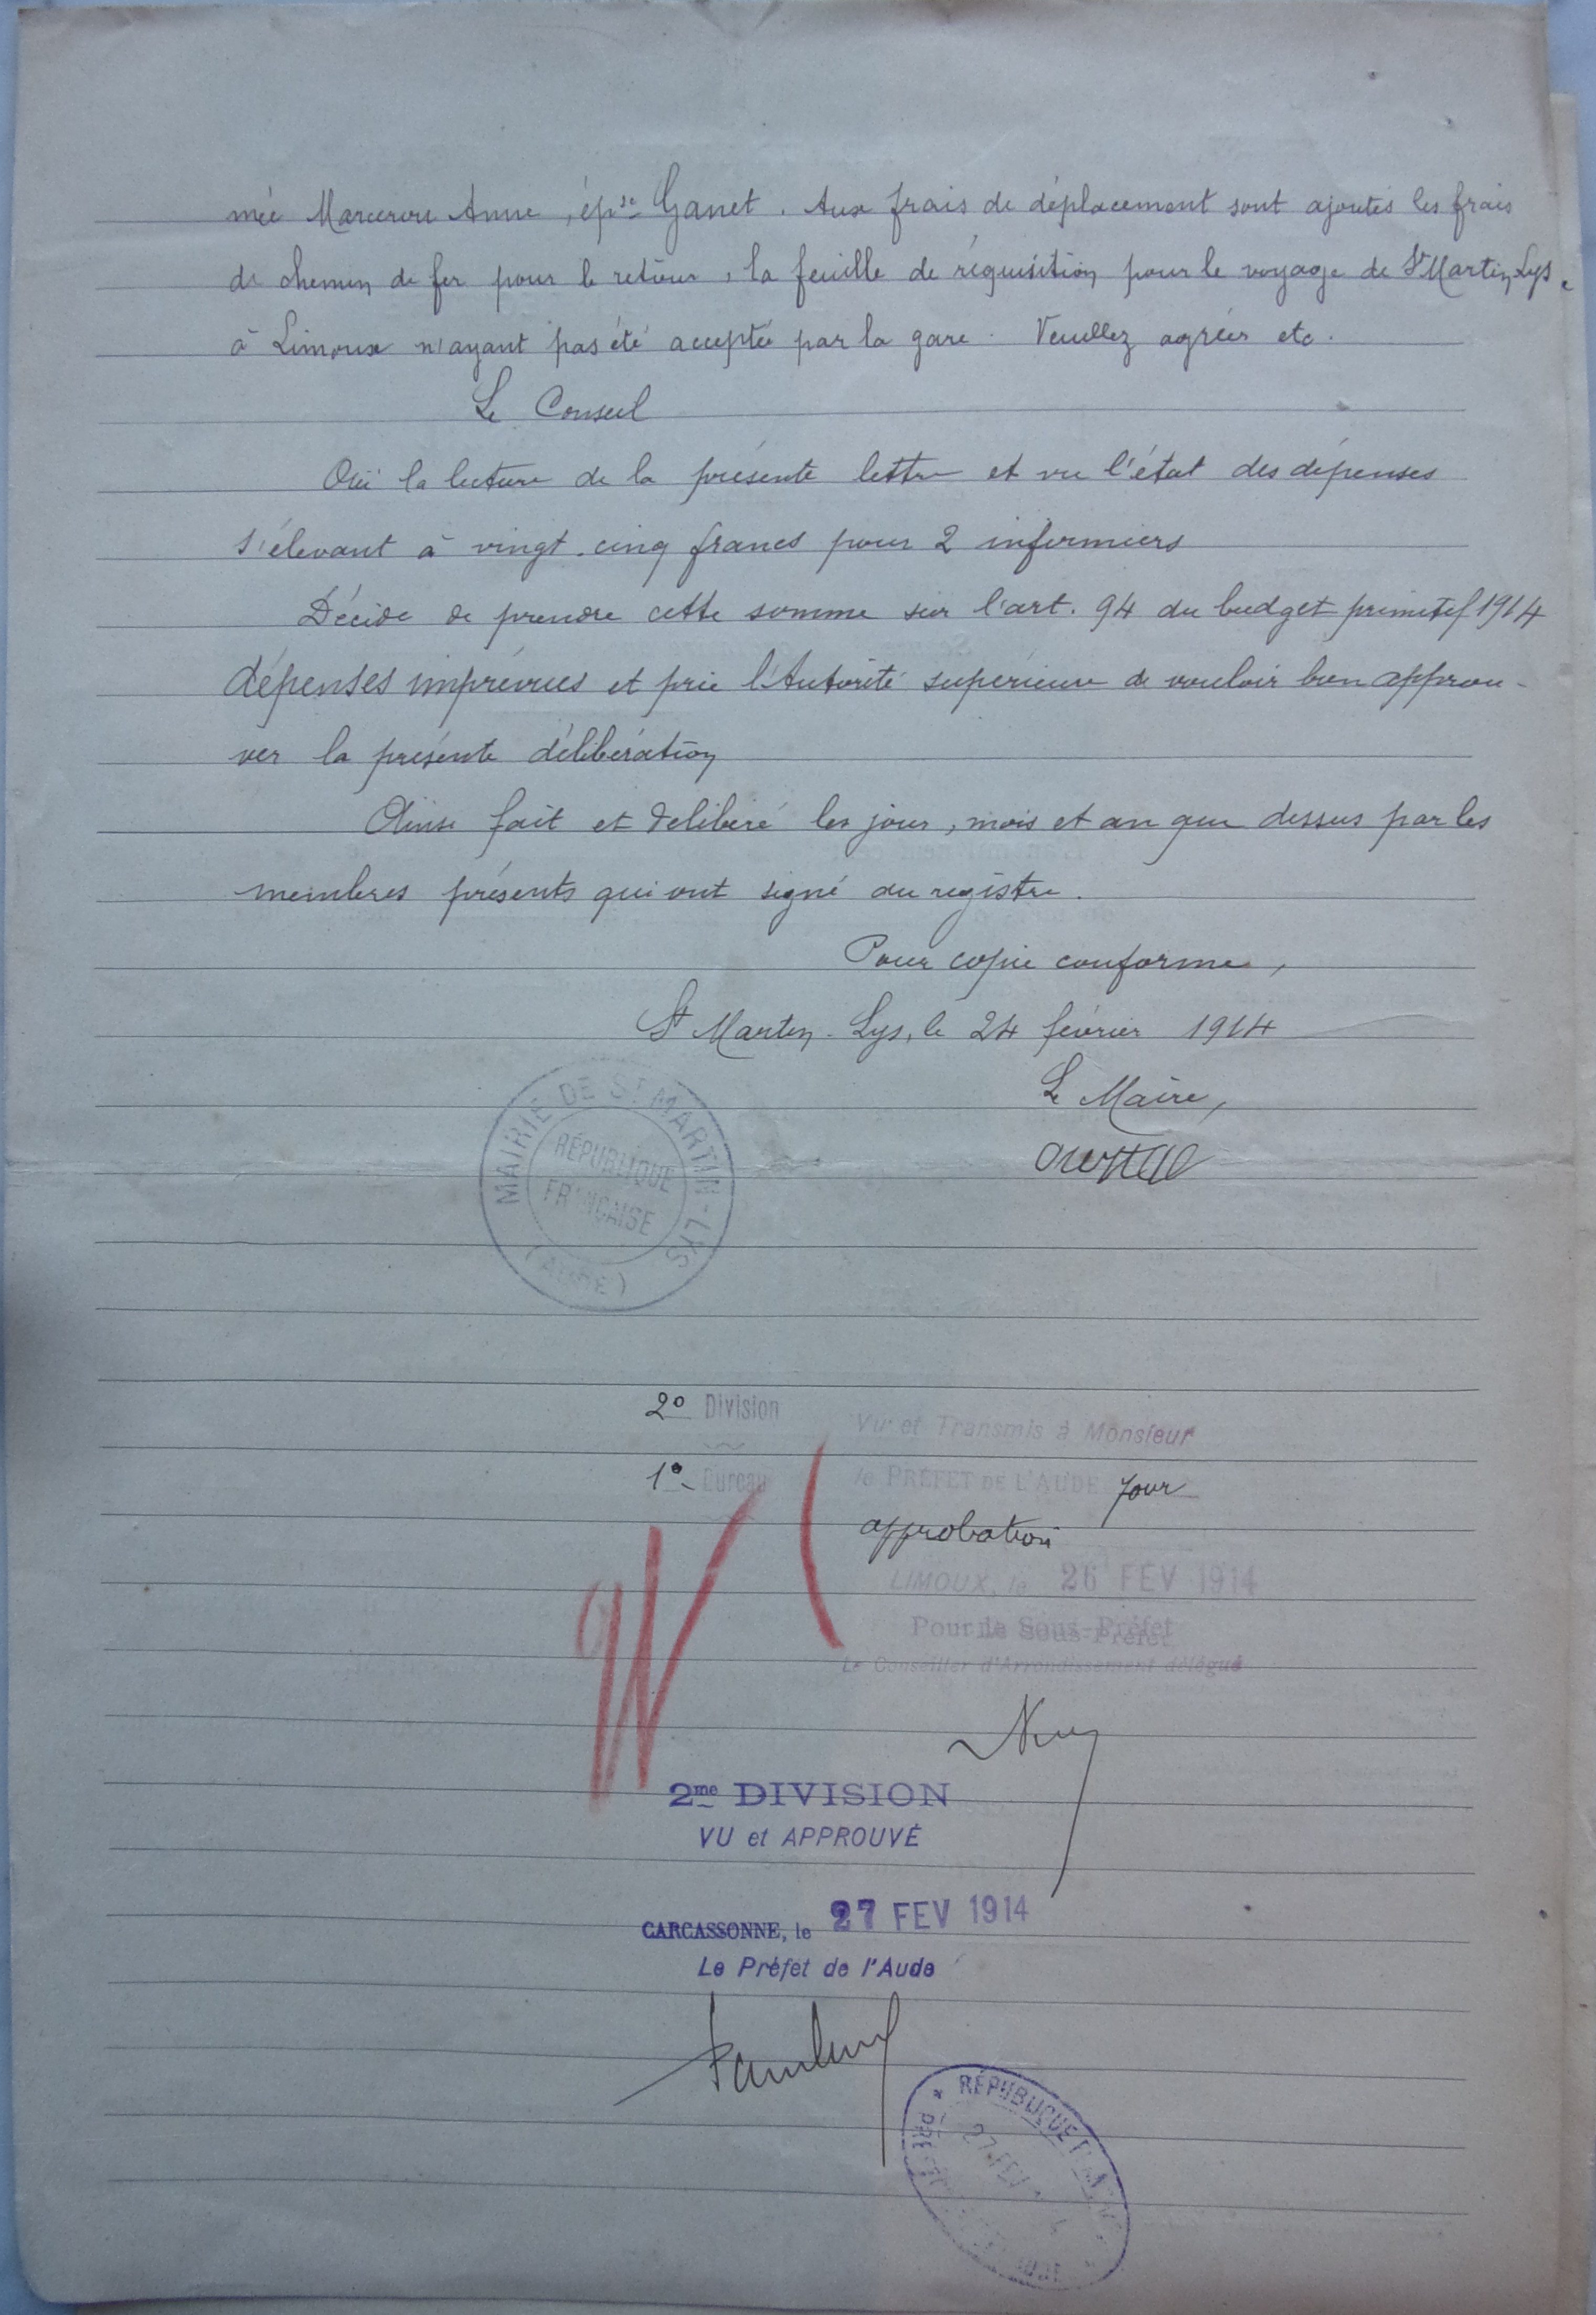 mée Marcerou Anne, épse Ganet. Aux frais de déplacement sont ajoutés les frais
de chemin de fer pour le retour, la feuille de réquisition pour le voyage de St Martin Lys
à Limoux n'ayant pas été acceptée par la gare. Veuillez agréer etc.
Le Conseil
Ouï la lecture de la présente lettre et vu l'état des dépenses
s'élevant à vingt-cinq francs pour 2 infirmiers
Décide de prendre cette somme sur l'art. 94 du budget primitif 1914
dépenses imprévues et prie l'Autorité supérieure de vouloir bien approu-
ver la présente délibération
Ainsi fait et délibéré les jour, mois et an que dessus par les
membres présents qui ont signé au registre.
Pour copie conforme,
St Martin-Lys, le 24 février 1914
Le Maire,
MAIRIE DE ST MARTIN-LYS
RÉPUBLIQUE
FRANÇAISE
(AUDE)
2e Division
1e Bureau
Vu et Transmis à Monsieur
le PRÉFET DE L'AUDE pour
approbation
LIMOUX, le 26 FEV 1914
Pour le Sous-Préfet
Le Conseiller d'Arrondissement délégué
2me DIVISION
VU et APPROUVÉ
CARCASSONNE, le 27 FEV 1914
Le Préfet de l'Aude
RÉPUBLIQUE
27 FEV